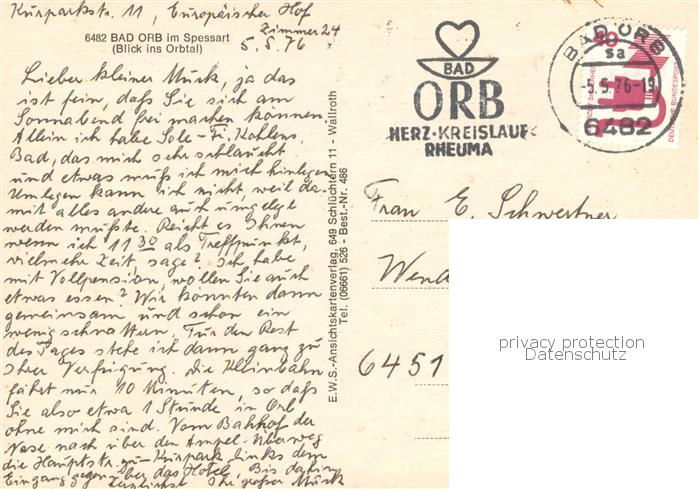 Kurparkstr. 11, Europäischer Hof
Zimmer 24
6482 BAD ORB im Spessart
(Blick ins Orbtal)
5.5.76
Lieber kleiner Muck, ja das
ist fein, daß Sie sich am
Sonnabend frei machen können.
Allein ich habe Sole- Fr. Kohlens.
Bad, das mich sehr schlaucht
und etwas muß ich mich hinlegen
Umlegen kann ich nicht weil da-
mit alles andere auch umgelegt
werden müßte. Reicht es Ihnen
wenn ich 11 30 als Treffpunkt,
vielmehr Zeit, sage? Ich habe
mit Vollpension, wollen Sie auch
etwas essen? Wir könnten dann
gemeinsam und schon ein
wenig schnattern. Für den Rest
des Tages stehe ich dann ganz zu
Ihrer Verfügung. Die Kleinbahn
fährt nur 10 Minuten, so daß
Sie also etwa 1 Stunde in Orb
ohne mich sind. Vom Bahnhof der
Nase nach über den Ampel-Überweg
die Hauptstr. zum Kurpark links dem
Eingang gegenüber das Hotel. Bis dahin
herzlichst Ihr großer Muck
E.W.S.-Ansichtskartenverlag, 649 Schlüchtern 11 - Wallroth
Tel. (06661) 526 - Best.-Nr. 486
BAD
ORB
HERZ·KREISLAUF
RHEUMA
BAD ORB
sa
-5.5.76-19
6482
40
DEUTSCHE BUNDESPOST
Frau E. Schwertner
Wend
6451
privacy protection
Datenschutz